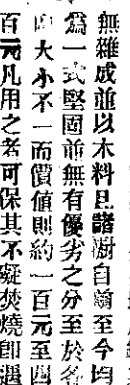 無雜成並以木料且諸廚自給至今均
為一式堅固前無有優劣之分至於名
大小不一而價値則約一百元至四
百元凡用之者可保其不礙焚燒卽遇